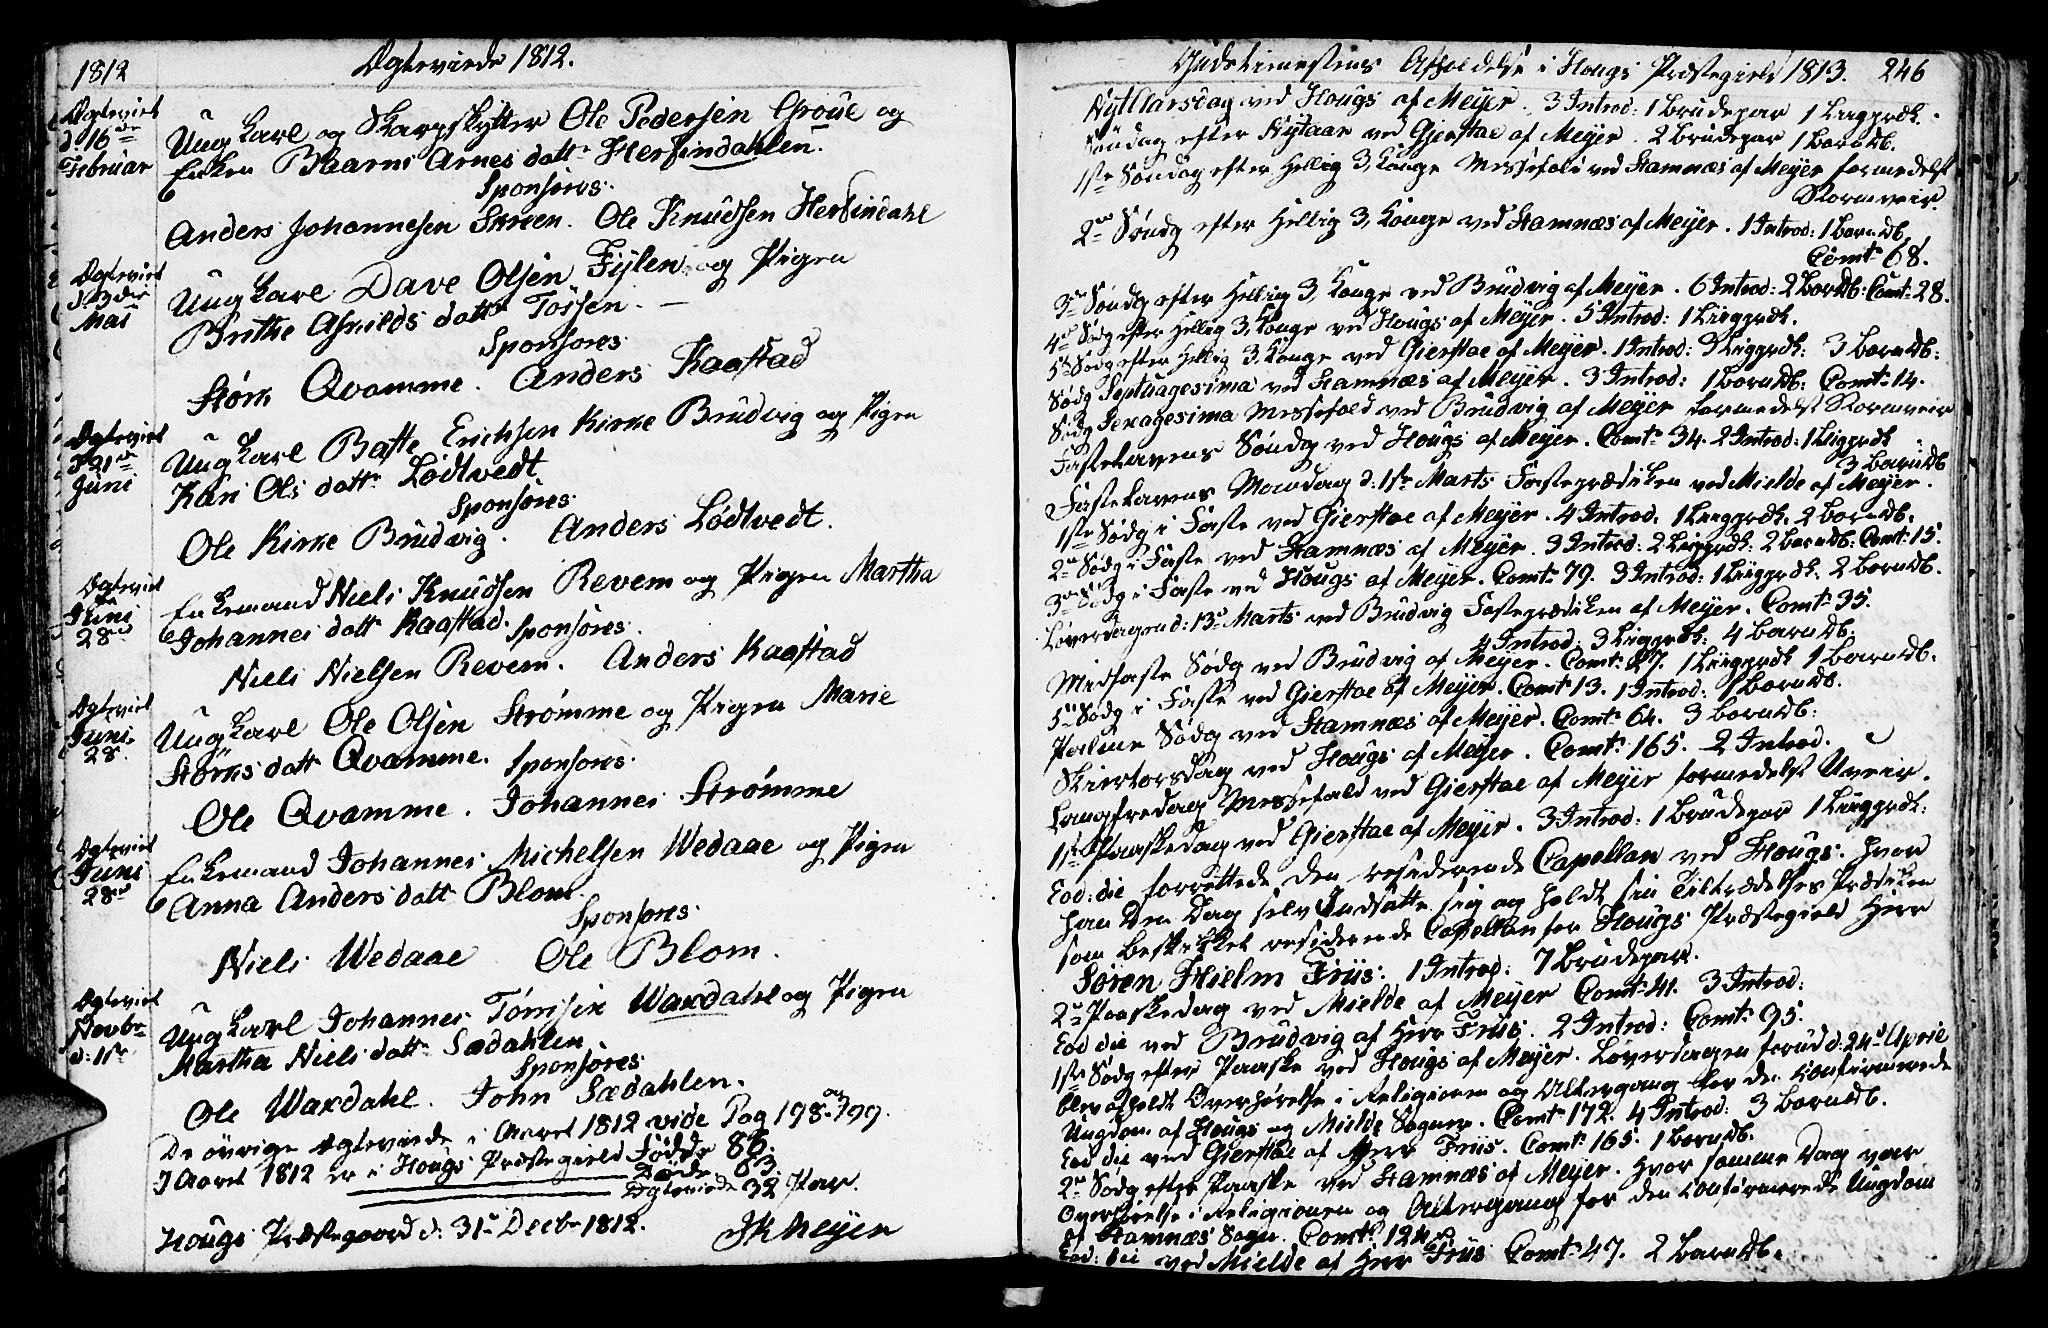 1812
Ægteviede 1812.
Ægteviet
d. 16de
Februar
Ungkarl og Skarpskytter Ole Pedersen Groue og
Enken Baarni Arnes datt Herfindahlen.
Sponsores.
Anders Johannesen Skreen. Ole Knudsen Herfindahl
Ægteviet
d. 3die
Mai
Ungkarl Dave Olsen Fylen og Pigen
Brithe Asmilds datt Tossen. —
Sponsores
Størk Qvamme. Anders Kaastad
Ægteviet
d. 21de
Juni
Ungkarl Baste Erichsen Kirke Brudvig og Pigen
Kari Ols datt Lødtvedt
Sponsores
Ole Kirke Brudvig. Anders Lødtvedt.
Ægteviet
Juni
28de
Enkemand Niels Knudsen Revem og Pigen Martha
Johannes datt Kaastad. Sponsores.
Niels Nielsen Revem. Anders Kaastad
Ægteviet
Juni
28.
Ungkarl Ole Olsen Strømme og Pigen Marie
Størks datt Qvamme. Sponsores.
Ole Qvamme. Johannes Strømme
Ægteviet
Juni
28de
Enkemand Johannes Michelsen Wedaae og Pigen
Anna Anders datt Blom.
Sponsores
Niels Wedaae Ole Blom.
Ægteviet
Novbr
d: 1ste
Ungkarl Johannes Tørrisen Waxdahl og Pigen
Martha Niels datt Sædahlen.
Sponsores
Ole Waxdahl. John Sædahlen.
De øvrige Ægteviede i Aaret 1812 vide Pag 198 og 199.
I Aaret 1812 er i Hougs Præstegield Fødde 86.
Døde 83.
Ægteviede 32 Par.
Hougs Præstegaard d. 31te Decbr 1812. JKMeyer
Gudstienestens Afholdelse i Hougs Præstegield 1813. 246
Nyttaarsdag ved Hougs af Meyer. 3 Introd: 1 Brudepar 1 Liigprdk.
Søndag efter Nytaar ved Gierstae af Meyer. 2 Brudepar 1 Barndb.
1ste Søndag efter Hellig 3 Konge Messefald ved Stamnæs af Meyer formedelst
Stormveir.
2den Søndg efter Hellig 3 Konge ved Stamnæs af Meyer. 1 Introd: 1 Barndb.
Comt. 68.
3die Søndg efter Hellig 3 Konge ved Brudvig af Meyer. 6 Introd: 2 Barndb: Comt: 28.
4de Sødg efter Hellig 3 Konge ved Hougs af Meyer. 5 Introd: 1 Liigprdk.
5te Sødg efter Hellig 3 Konge ved Gierstae af Meyer. 1 Introd: 3 Liigprdk: 3 Barndb:
Sødg Septuagesima ved Stamnæs af Meyer. 3 Introd: 1 Barndb: Comt: 14.
Sødg Sexagesima Messefald ved Brudvig af Meyer formedelst Stormveir
Fastelavens Søndg ved Hougs af Meyer. Comt. 34. 2 Introd: 1 Liigprdk
3 Barndb
Fastelavens Mandag d: 1ste Marts Fasteprædiken ved Mielde af Meyer.
1ste Sødg i Faste ved Gierstae af Meyer. 4 Introd. 1 Liigprdk. 2 Barndb.
2den Sødg i Faste ved Stamnæs af Meyer. 3 Introd: 2 Liigprdk: 2 Barndb: Comt: 15.
3die Sødg i Faste ved Hougs af Meyer. Comt. 79. 3 Introd: 1 Liigprdk. 2 Barndb.
Løverdagen d: 13de Marts ved Brudvig Fasteprædiken af Meyer. Comt. 35.
4 Introd. 3 Liigprdk: 4 Barndb.
Midfaste Sødg ved Brudvig af Meyer. Comt. 27. 1 Liigprdk 1 Barndb.
5te Sødg i Faste ved Gierstae af Meyer. Comt 13. 1 Introd: 1 Barndb.
Palme Sødg ved Stamnæs af Meyer. Comt. 64. 3 Barndb:
Skiertorsdag ved Hougs af Meyer. Comt. 165. 2 Introd.
Langfredag Messefald ved Gierstae af Meyer formedelst Uveir.
1ste Paaskedag ved Gierstae af Meyer. 3 Introd: 1 Brudepar 1 Liigprdk:
Eod: die forrettede den residerende Capellan ved Hougs. hvor
han den Dag selv Indsatte sig og holdt sin Tiltrædelses Prædiken
som beskikket residerende Capellan for Hougs Præstegield Herr
Søren Hielm Friis. 1 Introd: 7 Brudepar.
2den Paaskedag ved Mielde af Meyer Comt. 41. 3 Introd:
Eod die ved Brudvig af Herr Friis. 2 Introd: Comt. 95.
1ste Sødg efter Paaske ved Hougs af Meyer. Løverdagen forud d: 24de April
blev afholdt Overhørelse i Religionen og Altergang for den confirmerede
Ungdom af Hougs og Mielde Sogner. Comt. 172. 4 Introd: 3 Barndb.
Eod die ved Gierstae af Herr Friis. Comt. 165. 1 Barndb.
2den Sødg efter Paaske ved Stamnæs af Meyer. hvor samme Dag var
Overhørelse i Religionen og Altergang for den confirmerede Ungdom
af Stamnæs Sogn. Comt. 124
Eod: die ved Mielde af Herr Friis Comt. 47. 2 Barndb.